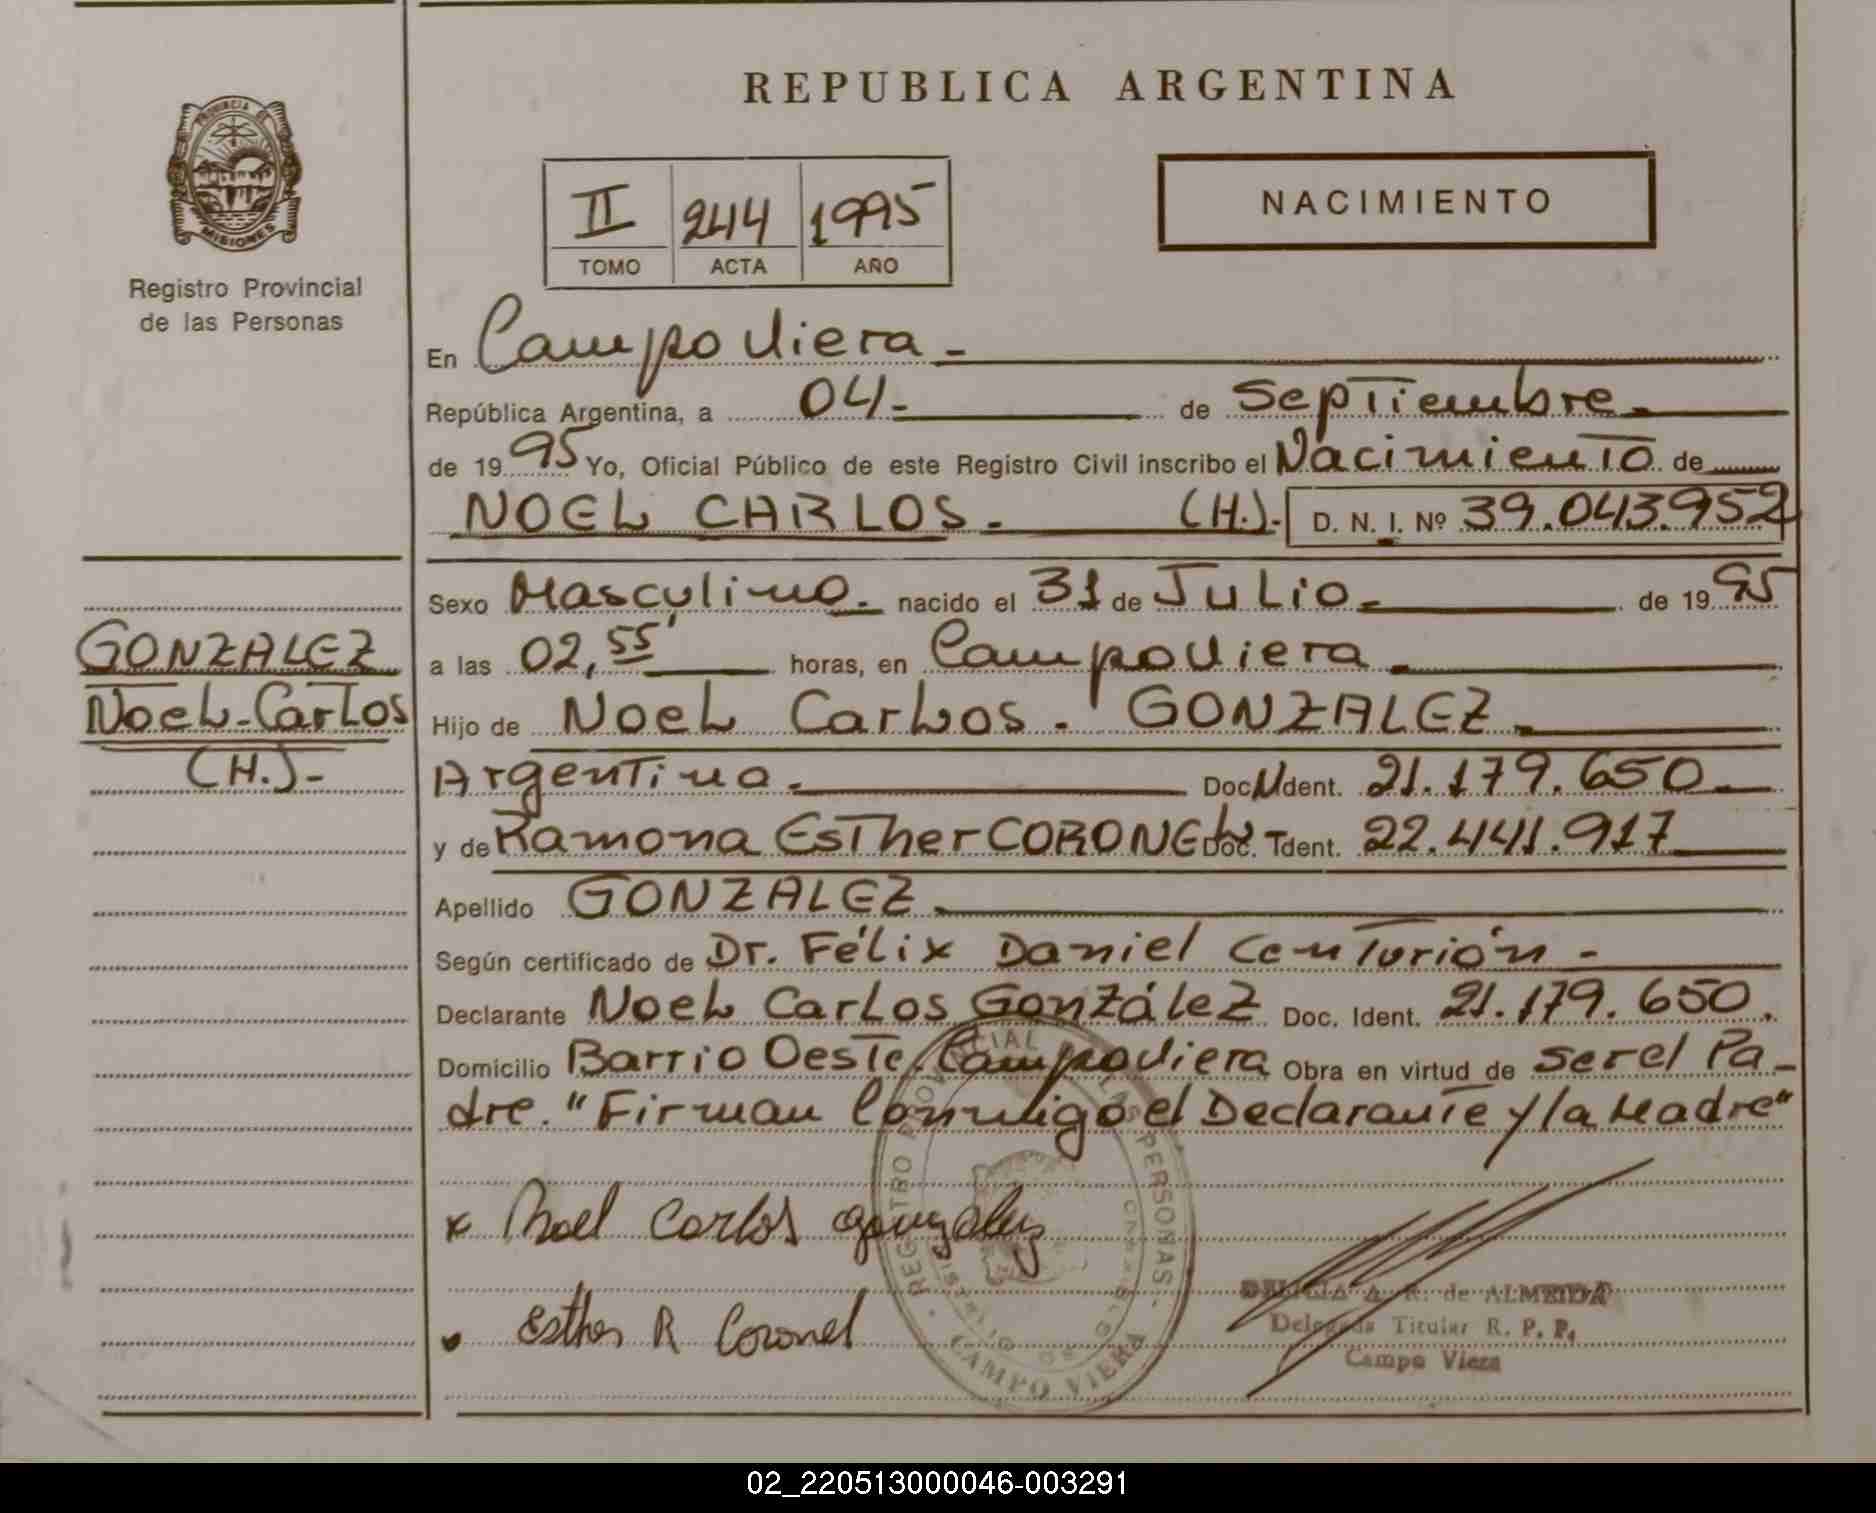 REPUBLICA ARGENTINA
PROVINCIA DE
MISIONES
Registro Provincial
de las Personas
II 244 1995
TOMO ACTA AÑO
NACIMIENTO
En Campo Viera -
República Argentina, a 04- de Septiembre.
de 19 95 Yo, Oficial Público de este Registro Civil inscribo el Nacimiento de
NOEL CARLOS. (H.)- D. N. I. Nº 39.043.952
Sexo Masculino. nacido el 31 de Julio- de 19 95
a las 02,55' horas, en Campo Viera
Hijo de Noel Carlos - GONZALEZ
Argentino. Doc. Ident. 21.179.650
y de Ramona Esther CORONEL Doc. Ident. 22.441.917
Apellido GONZALEZ
Según certificado de Dr. Félix Daniel Centurión -
Declarante Noel Carlos González Doc. Ident. 21.179.650.
Domicilio Barrio Oeste. Campo Viera Obra en virtud de ser el Pa-
dre. "Firman Conmigo el Declarante y la Madre"
GONZALEZ
Noel-Carlos
(H.)-
x Noel Carlos gonzalez
Esther R Coronel
REGISTRO PROVINCIAL DE LAS PERSONAS
CAMPO VIERA
A. R. de ALMEIDA
Delegada Titular R. P. P.
Campo Viera
02_220513000046-003291